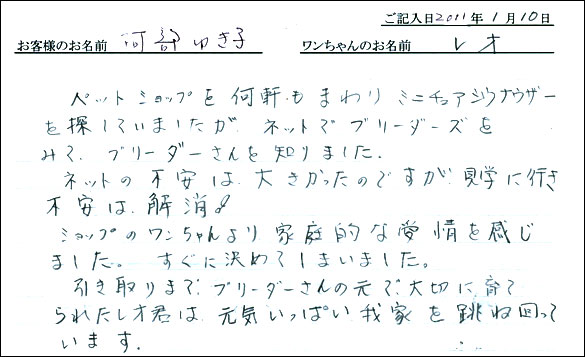 ご記入日2011年1月10日
お客様のお名前 河部ゆき子 ワンちゃんのお名前 レオ
ペットショップを何軒もまわりミニチュアシュナウザー
を探していましたが、ネットでブリーダーズを
みて、ブリーダーさんを知りました。
ネットの不安は、大きかったのですが、見学に行き
不安は、解消!
ショップのワンちゃんより家庭的な愛情を感じ
ました。すぐに決めてしまいました。
引き取りまで、ブリーダーさんの元で、大切に、育て
られたレオ君は、元気いっぱい我家を跳ね回って
います。